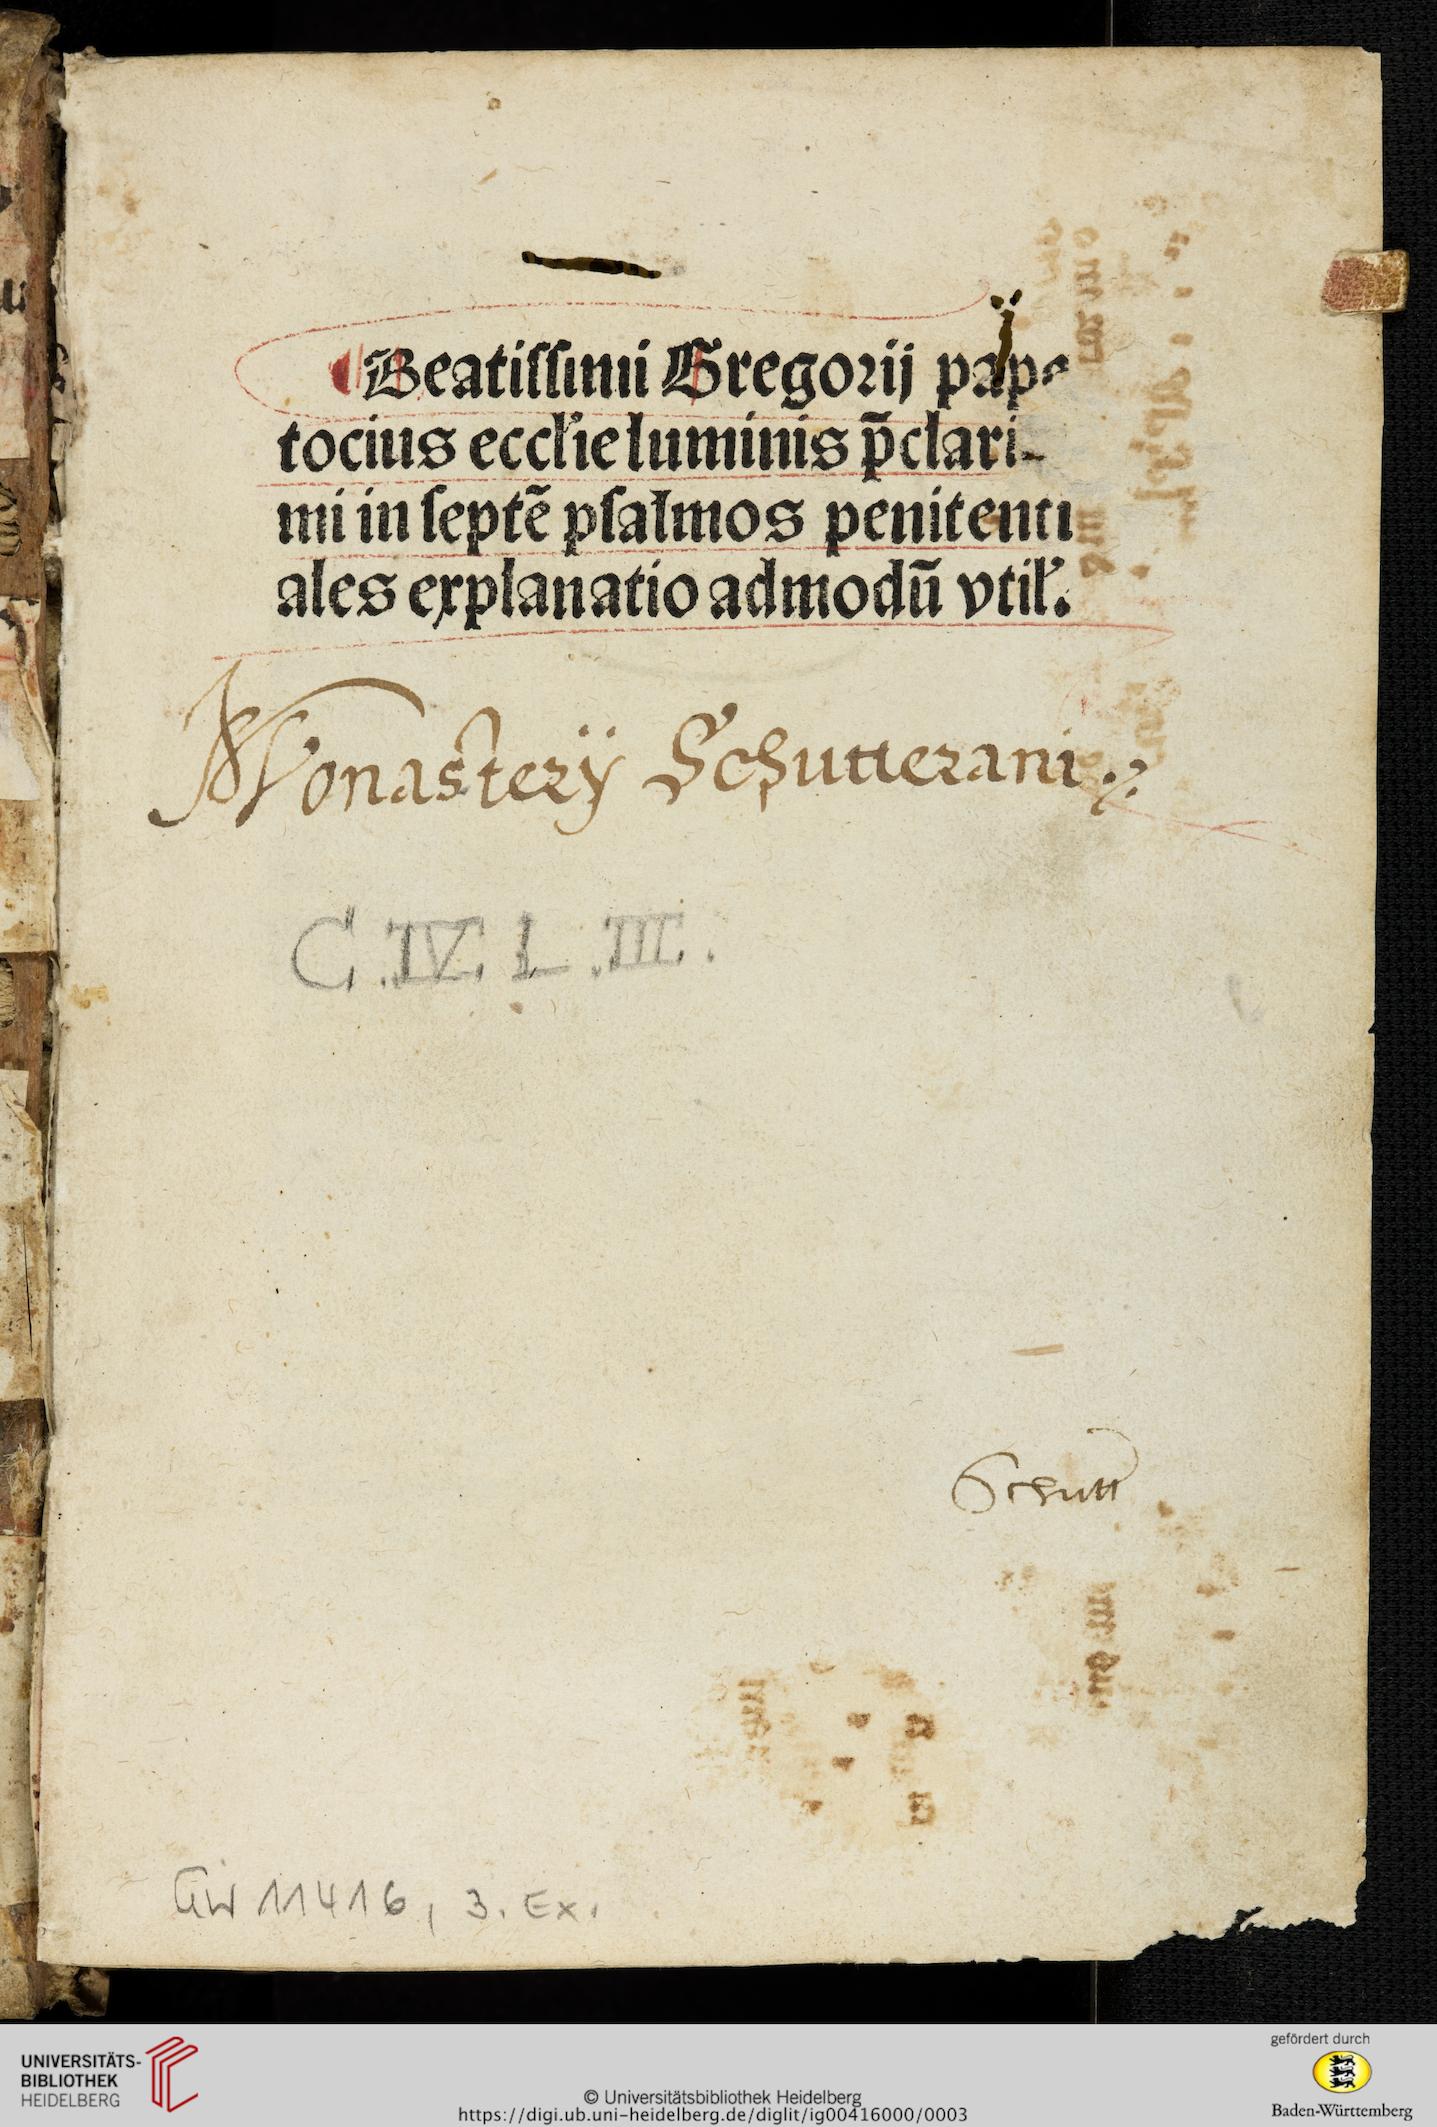 Beatissimi Gregorij pape
tocius eccl'ie luminis p̄clari-
mi in septē psalmos penitenti
ales explanatio admodū vtil'.
Monasterÿ Schutterani
C.IV. L.III.
Schutt
GW 11416, 3. Ex.
UNIVERSITÄTS-
BIBLIOTHEK
HEIDELBERG
© Universitätsbibliothek Heidelberg
https://digi.ub.uni-heidelberg.de/diglit/ig00416000/0003
gefördert durch
Baden-Württemberg